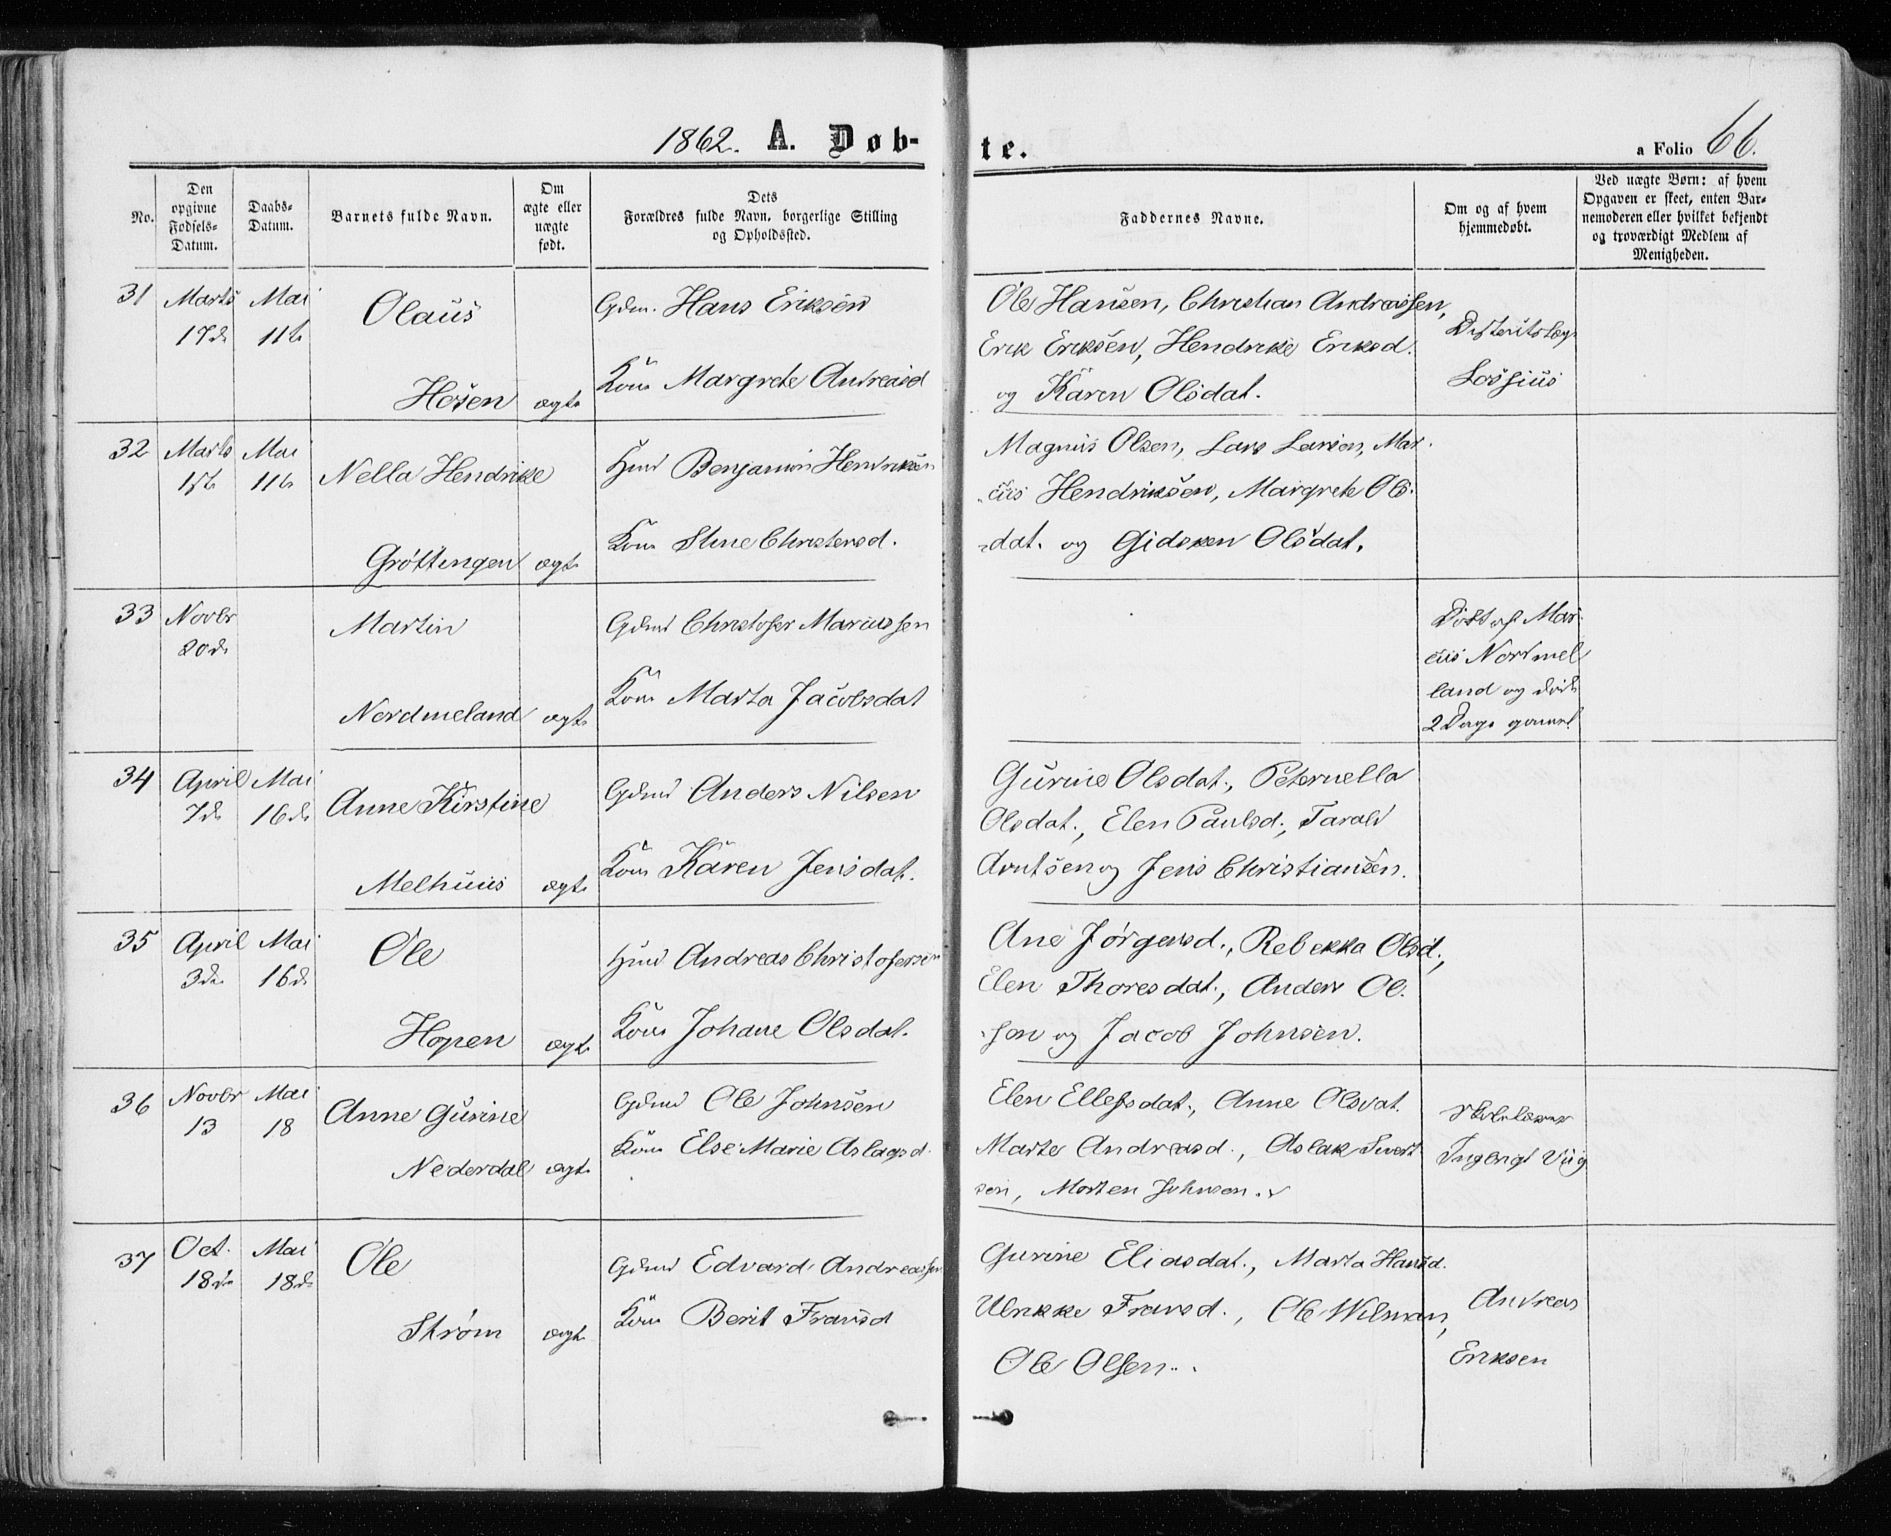 1862. A. Døb-
te. a Folio 66.
No.
Den opgivne Fødsels-Datum.
Daabs-Datum.
Barnets fulde Navn.
Om ægte eller uægte født.
Dets Forældres fulde Navn, borgerlige Stilling og Opholdssted.
Faddernes Navne.
Om og af hvem hjemmedøbt.
Ved uægte Børn: af hvem Opgaven er skeet, enten Barnemoderen eller hvilket bekjendt og troværdigt Medlem af Menigheden.
31 Marts 17de Mai 11te Olaus Hosen ægte
Gdm. Hans Eriksen
Kone Margrete Andreasd
Ole Hansen, Christian Andreassen,
Erik Eriksen, Hendrike Eriksd.
og Karen Olsdat.
Lossius
32 Marts Mai 11te Nella Hendrike Grøttingen ægte
Hmd Benjamin Hendriksen
Kone Stine Christensd.
Magnus Olsen, Lars Larsen, Mar-
cus Hendriksen, Margrete Ols-
-dat. og Gidsken Olsdat.
33 Novbr 20de Martin Nordmeland ægte
Gdmd Christofer Mariussen
Kone Marta Jacobsdat
Døbt af Mar-
cus Nordmel
land og døde
2 Dage gammel
34 April 7de Mai 16de Anne Kirstine Melhuus ægte
Gdmd Anders Nilsen
Kone Karen Jensdat.
Gurine Olsdat., Peternella
Olsdat., Elen Paulsd., Tarald
Arntsen og Jens Christiansen.
35 April 3de Mai 16de Ole Hopen ægte
Hmd Andreas Christofersen
Kone Johane Olsdat.
Ane Jørgensd., Rebekka Olsd.,
Elen Thoresdat., Anders Ol-
-sen og Jacob Johnsen.
36 Novbr 13 Mai 18 Anne Gurine Nederdal ægte
Gdmd Ole Johnsen
Kone Else Marie Aslagsd.
Elen Ellefsdat., Anne Olsdat.
Marte Andreasd., Aslak Sivert
sen, Morten Johnsen.
Skolelærer
Ingebrigt Viig
37 Oct. 18de Mai 18de Ole Strøm ægte
Gdmd Edvard Andreassen
Kone Berit Fransd
Gurine Eliasdat., Marta Hansd.
Ulrikke Fransd., Ole Wilman,
Ole Olsen.
Andreas
Eriksen